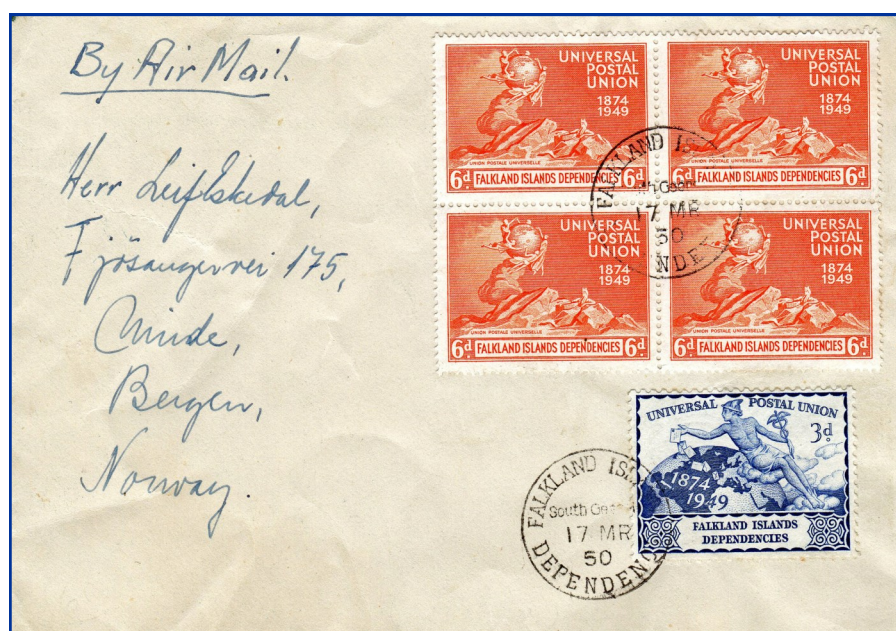 By Air Mail.
Herr Leif Eskedal,
Fjösangervei 175,
Minde,
Bergen,
Norway.
UNIVERSAL
POSTAL
UNION
1874
1949
UNION POSTALE UNIVERSELLE
6d. FALKLAND ISLANDS DEPENDENCIES 6d.
UNIVERSAL
POSTAL
UNION
1874
1949
UNION POSTALE UNIVERSELLE
6d. FALKLAND ISLANDS DEPENDENCIES 6d.
FALKLAND
17 MR
50
UNIVERSAL
POSTAL
UNION
1874
1949
UNION POSTALE UNIVERSELLE
6d. FALKLAND ISLANDS DEPENDENCIES 6d.
UNIVERSAL
POSTAL
UNION
1874
1949
UNION POSTALE UNIVERSELLE
6d. FALKLAND ISLANDS DEPENDENCIES 6d.
UNIVERSAL POSTAL UNION
3d.
1874
1949
FALKLAND ISLANDS
DEPENDENCIES
FALKLAND
South
17 MR
50
DEPENDENC